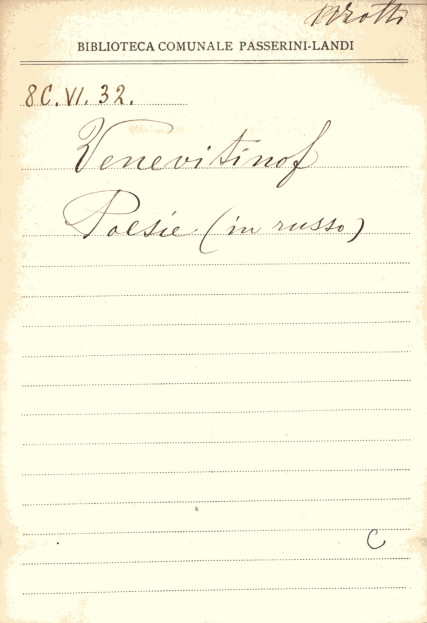 BIBLIOTECA COMUNALE PASSERINI-LANDI
8C. VI. 32.
Venevitinof
Poesie (in russo)
C